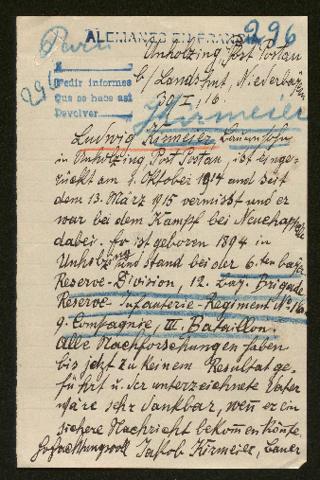 ALEMANES EN FRANCIA
296
Anholzing, Post Postau
b/ Landshut, Niederbayern
Pedir informes
Que se hace así
Devolver
296
30/I, 16.
Kirmeier
Ludwig Kirmeier, Bauernsohn
in Anholzing, Post Postau, ist einge-
rückt am 1. Oktober 1914 und seit
dem 13. März 1915 vermisst und er
war bei dem Kampf bei Neuchapelle
dabei. Er ist geboren 1894 in
Unholzing und stand bei der 6-ten bayr.
Reserve-Division, 12. bay. Brigade
Reserve-Infanterie-Regiment No. 16
9. Compagnie, III. Bataillon.
Alle Nachforschungen haben
bis jetzt zu keinem Resultat ge-
führt u. der unterzeichnete Vater
wäre sehr dankbar, wenn er ein
sichere Nachricht bekommen könte.
Hochachtungsvoll Jakob Kirmeier, Bauer